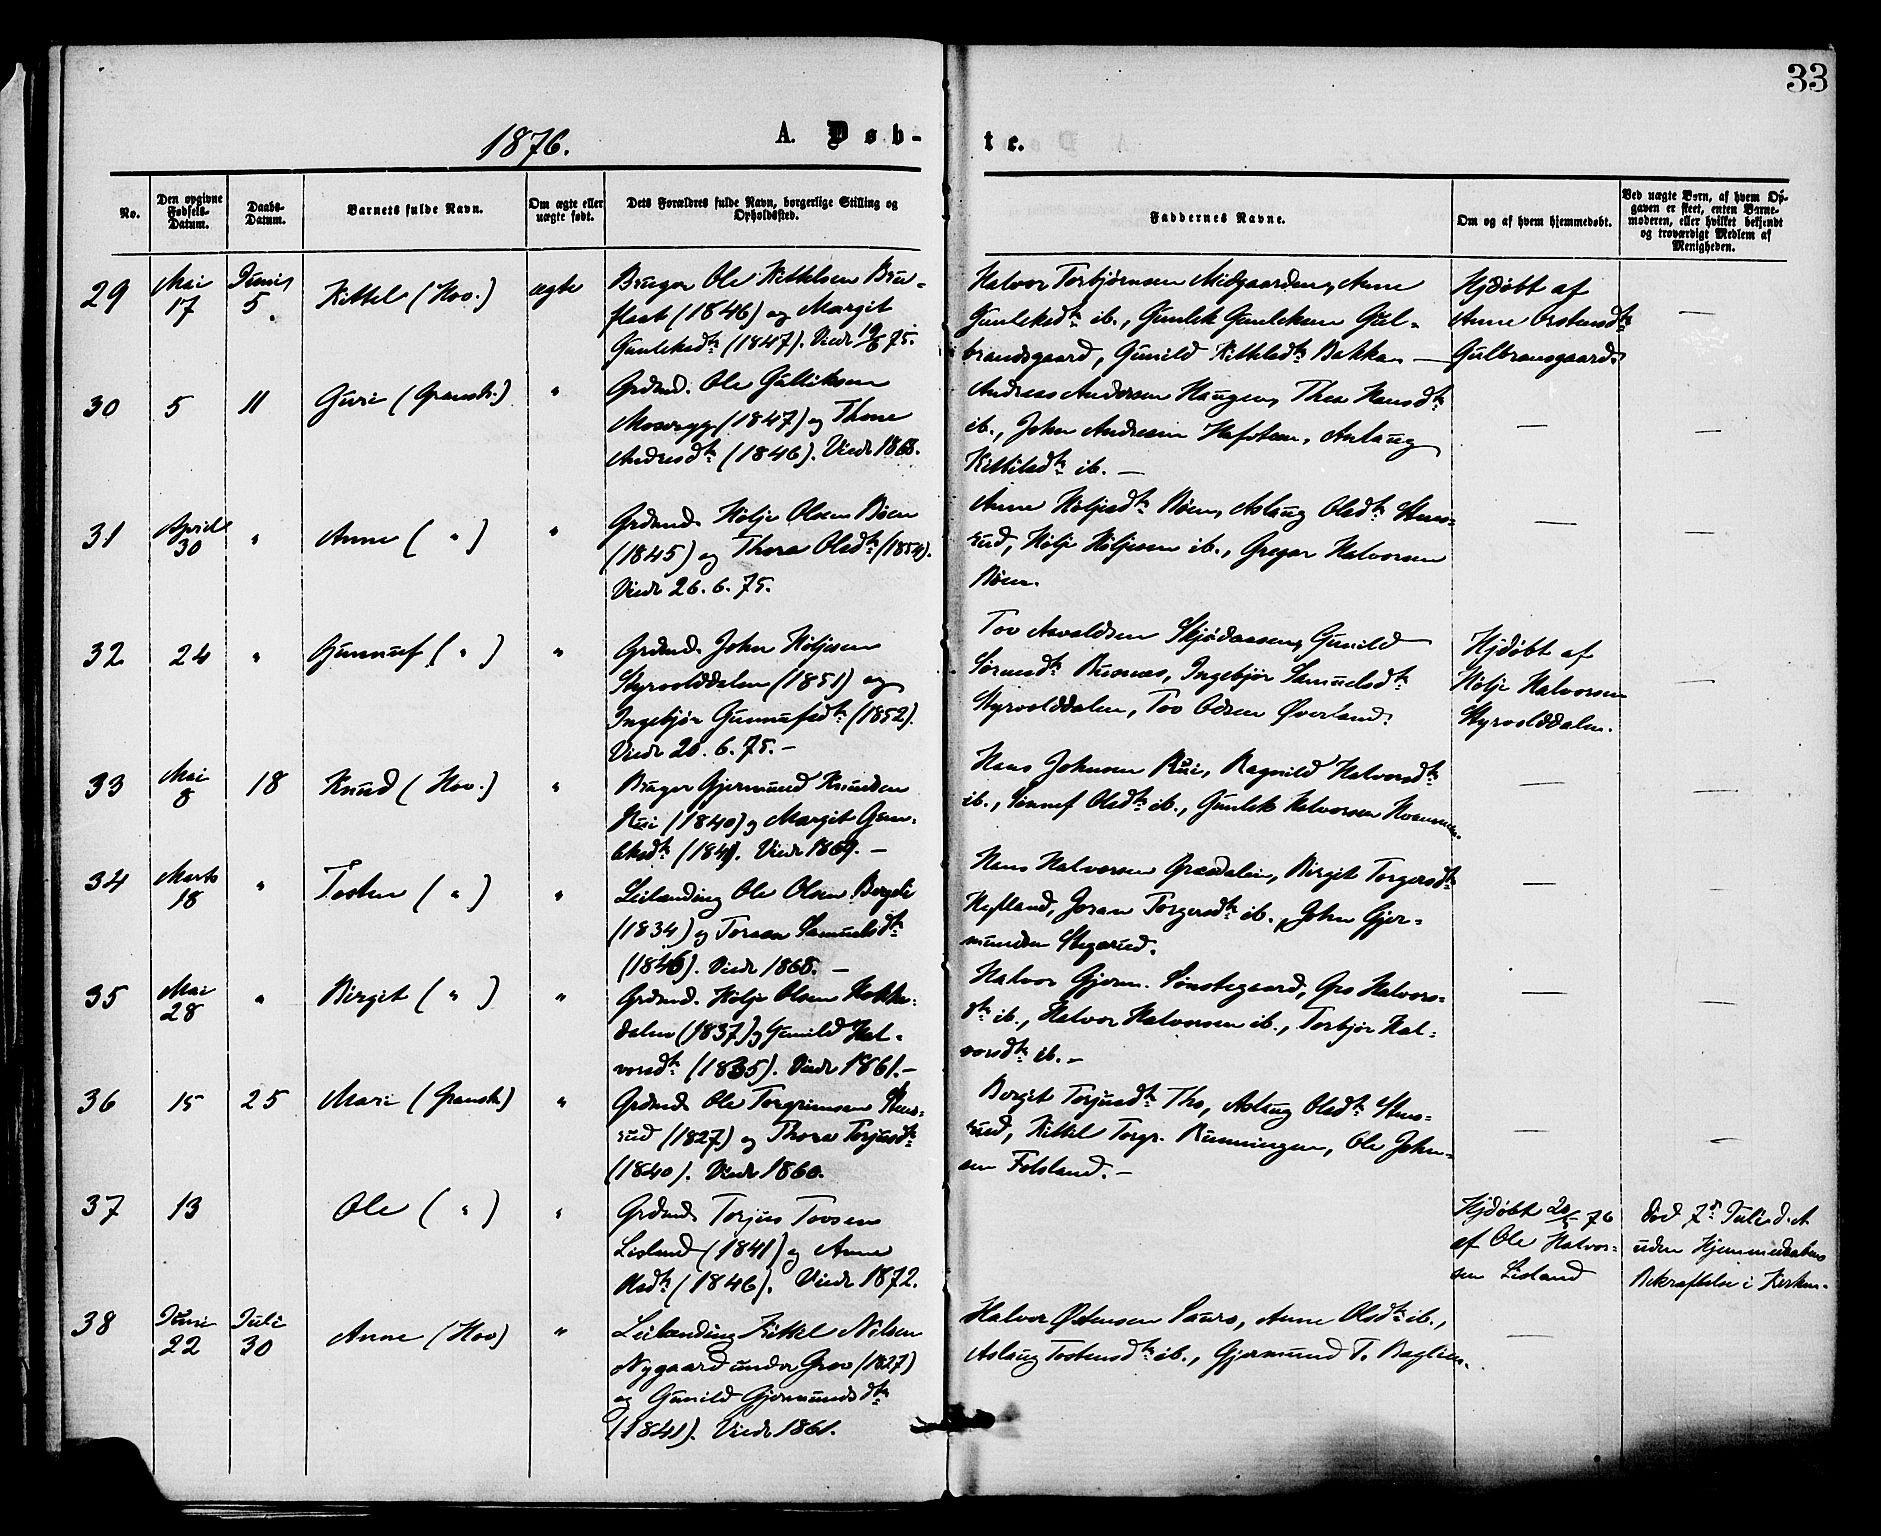 33
1876.
A. Døb-
te.
No.
Den opgivne Fødsels-Datum.
Daabs-Datum.
Barnets fulde Navn.
Om ægte eller uægte født.
Dets Forældres fulde Navn, borgerlige Stilling og Opholdssted.
Faddernes Navne.
Om og af hvem hjemmedøbt.
Ved uægte Børn, af hvem Opgaven er skeet, enten Barnemoderen, eller hvilket bekjendt og troværdigt Medlem af Menigheden.
29 Mai 17 Juni 5. Kittel (Hov.) ægte
Bruger Ole Kittelsen Bru-
flaat (1846) og Margit
Gunleksdtr (1847). Viede 75.
Halvor Torbjørnsen Midgaarden, Anne
Gunleksdtr ib., Gunlek Gunleksen Gul-
brandsgaard, Gunild Kittelsdtr Bakka. —
Hjdøbt af
Anne Østensdtr
Gulbransgaard.
—
30 5 11 Guri (Gransh.) "
Grdmd. Ole Gulliksen
(1847) og Thone
Andresdtr (1846). Viede 1868.
Andreas Andersen Haugen, Thea Hansdtr
ib., John Andresen, Aslaug
Kittilsdtr ib. —
—
—
31 April 30 " Anne ( " ) "
Grdmd. Hølje Olsen Bøen
(1845) og Thora Olsdtr (1854).
Viede 26. 6. 75.
Anne Høljesdtr Bøen, Aslaug Olsdtr Stens-
rud, Hølje Høljesen ib., Gregar Halvorsen
Bøen.
—
—
32 24 " Gunnuf ( " ) "
Grdmd. John Høljesen
Styrvolddalen (1851) og
Ingebjør Gunnufsdtr (1852).
Viede 20. 6. 75. —
Tov Asvaldsen Skjødaasen, Gunild
Busnæs, Ingebjør Samuelsdtr
Styrvolddalen, Tov Olsen Øverland.
Hjdøbt af
Hølje Halvorsen
Styrvolddalen.
—
33 Mai 8 18 Knud (Hov.) "
Bruger Gjermund Knudsen
Rui (1840) og Margit Gun-
leksdtr (1841). Viede 1869. —
Hans Johnsen Rui, Ragnild Halvorsdtr
ib., Sønnef Olsdtr ib., Gunlek Halvorsen
—
—
34 Marts 18 " Tosten ( " ) "
Leilænding Ole Olsen Bergeli
(1834) og Toraan Samuelsdtr
(1846). Viede 1868. —
Hans Halvorsen Graadalen, Birgit Torgersdtr
Hefland, Joran Torgersdtr ib., John Gjer-
mundsen Stegarud.
—
—
35 Mai 28 " Birgit ( " ) "
Grdmd. Hølje Olsen
dalen (1837) og Gunild Hal-
vorsdtr (1835). Viede 1861. —
Halvor Gjerm. Sønstegaard, Gro Halvors-
dtr ib., Halvor Halvorsen ib., Torbjør Hal-
vorsdtr ib. —
—
—
36 15 25 Mari (Gransh.) "
Grdmd. Ole Torgrimsen Stens-
rud (1827) og Thora Torjusdtr
(1840). Viede 1860.
Birgit Torjusdtr Tho, Aslaug Olsdtr Stens-
rud, Kittel Torgr. Runningen, Ole John-
sen Folsland. —
—
—
37 13 Ole ( " ) "
Grdmd. Torjus Tovsen
Lisland (1841) og Anne
Olsdtr (1846). Viede 1872.
Hjdøbt 20/5 76
af Ole Halvor-
sen Lisland
Død 7de Juli d. A.
uden Hjemmedaabens
Bekræftelse i Kirken.
38 Juni 22 Juli 30 Anne (Hov) "
Leilænding Kittel Nilsen
Nygaard under Grov (1827)
og Gunild Gjermundsdtr
(1841). Viede 1861.
Halvor Østensen Sauro, Anne Olsdtr ib.,
Aslaug Tostensdtr ib., Gjermund T. Baglien.
—